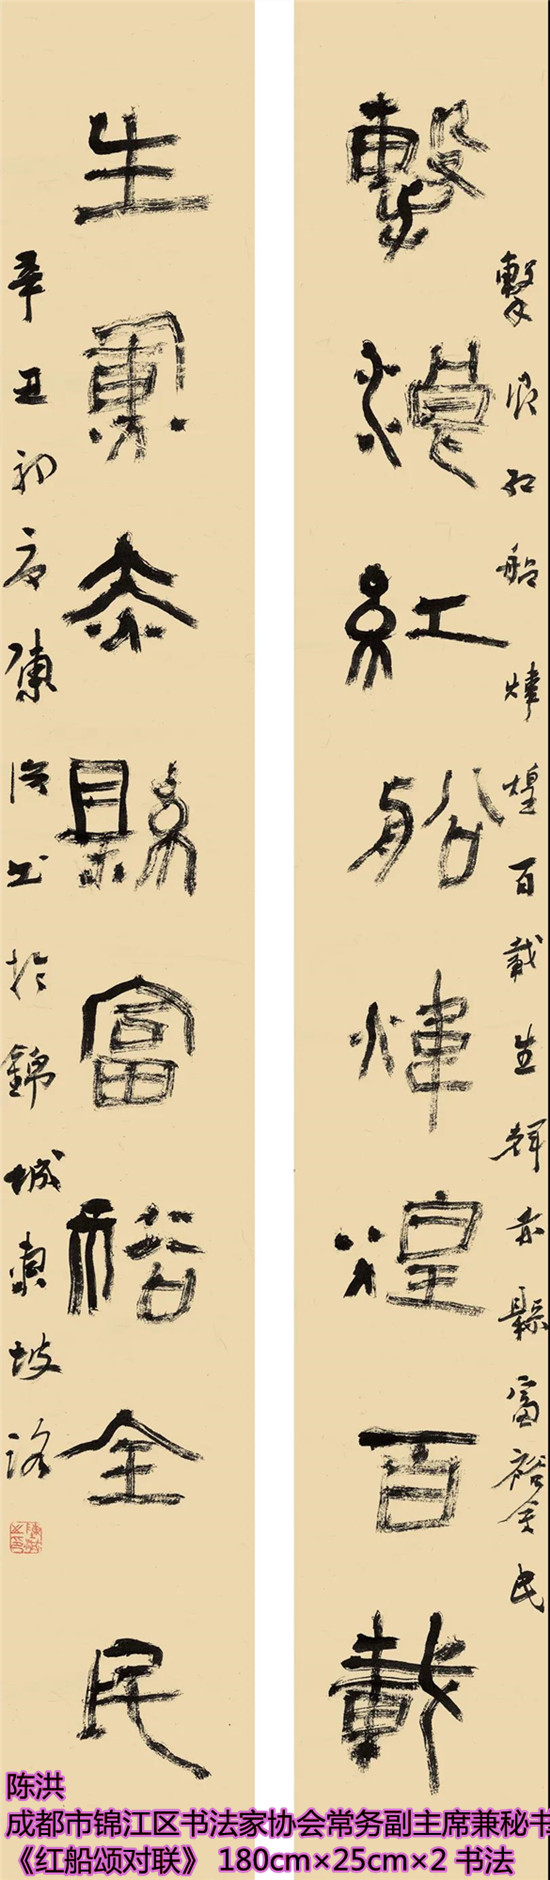 擊浪紅船煒煌百載
擊浪紅船煒煌百載生輝赤縣富裕全民
生輝赤縣富裕全民
辛丑初夏陳洪書於錦城東坡路
陈洪
成都市锦江区书法家协会常务副主席兼秘书
《红船颂对联》 180cm×25cm×2 书法